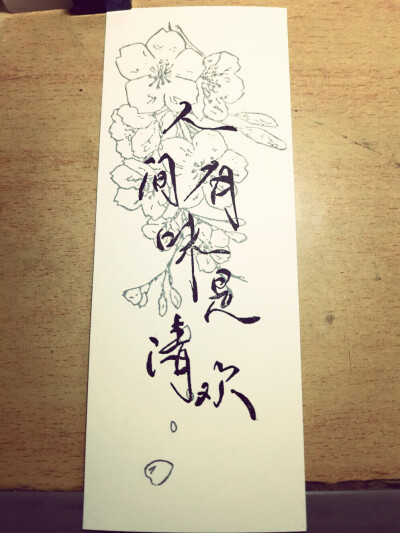 人间有味是清欢。